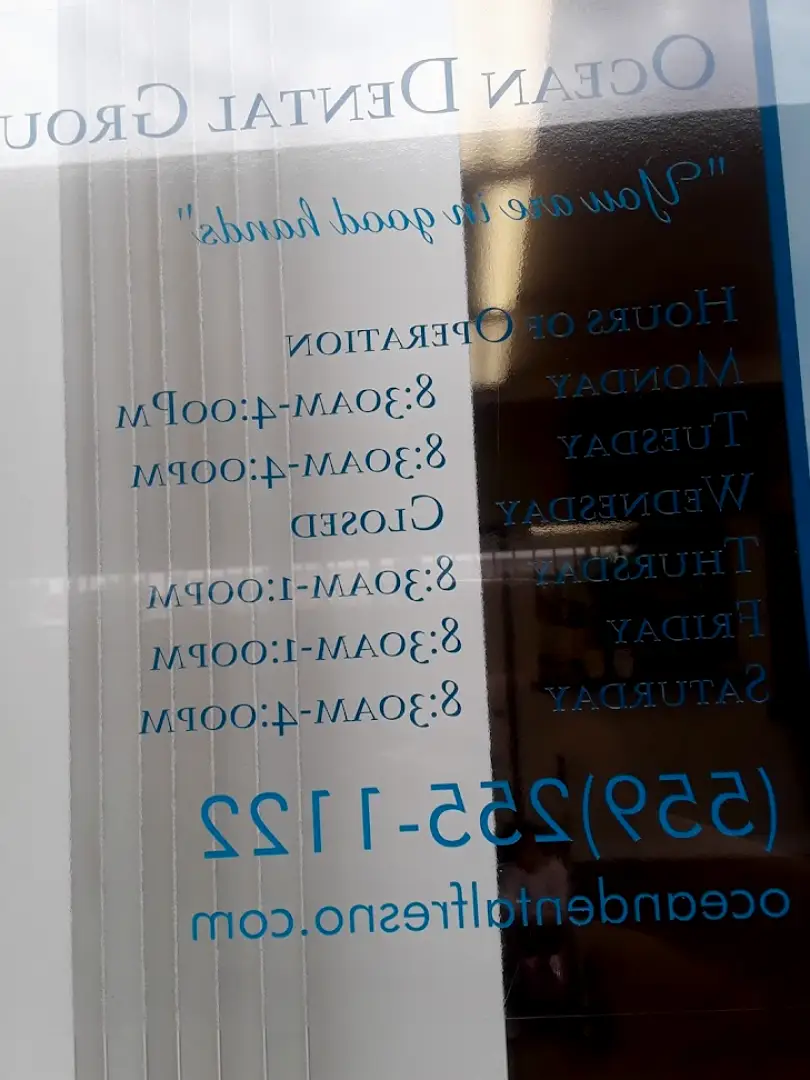 OCEAN DENTAL GROU
"You are in good hands"
HOURS OF OPERATION
MONDAY 8:30AM-4:00PM
TUESDAY 8:30AM-4:00PM
WEDNESDAY CLOSED
THURSDAY 8:30AM-1:00PM
FRIDAY 8:30AM-1:00PM
SATURDAY 8:30AM-4:00PM
(559)255-1122
oceandentalfresno.com